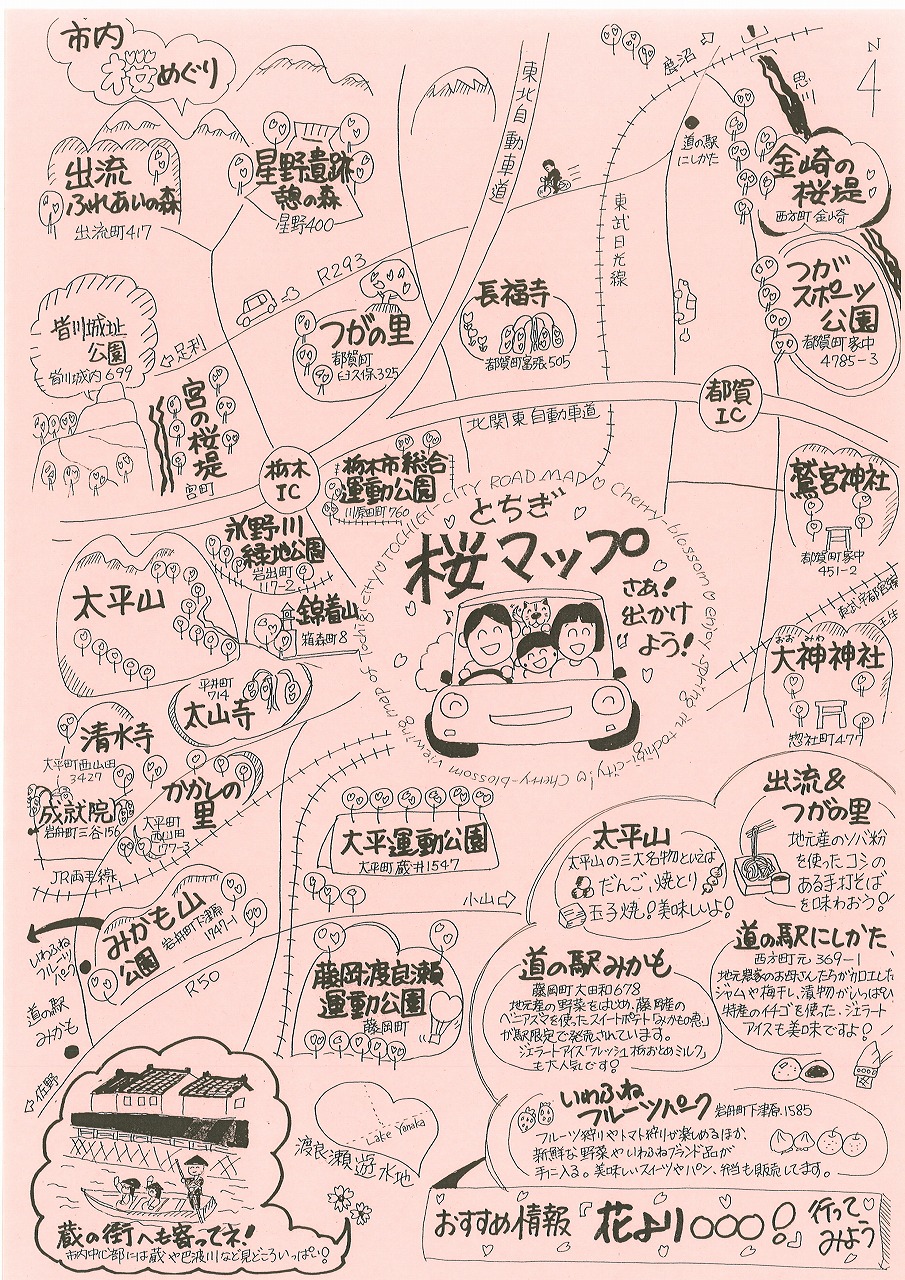 市内
桜めぐり
N
4
出流
ふれあいの森
出流町417
星野遺跡
憩の森
星野400
東北自動車道
鹿沼
思川
道の駅
にしかた
金崎の
桜堤
西方町金崎
東武日光線
R293
皆川城址
公園
皆川城内699
足利
つがの里
都賀町
臼久保325
長福寺
都賀町富張505
つが
スポーツ
公園
都賀町家中
4785-3
宮の桜堤
宮町
都賀
IC
北関東自動車道
栃木
IC
栃木市総合
運動公園
川原田町760
鷲宮神社
都賀町家中
451-2
永野川
緑地公園
岩出町
117-2
TOCHIGI CITY ROAD MAP ♡ Cherry-blossom ♡ enjoy spring in tochigi-city! ☺ Cherry-blossom viewing map of Tochigi-city ♡
とちぎ
桜マップ
さあ!
出かけ
よう!
太平山
錦着山
箱森町8
東武宇都宮線
壬生
おおみわ
大神神社
惣社町477
平井町
714
太山寺
清水寺
大平町西山田
3427
成就院
岩舟町三谷156
かかしの
里
大平町
西山田
177-3
JR両毛線
大平運動公園
大平町蔵井1547
小山
みかも山
公園
岩舟町下津原
1747-1
いわふね
フルーツパーク
R50
道の駅
みかも
佐野
藤岡渡良瀬
運動公園
藤岡町
Lake Yanaka
渡良瀬遊水地
太平山
太平山の三大名物といえば
だんご、焼とり
玉子焼!美味しいよ!
出流&
つがの里
地元産のソバ粉
を使ったコシの
ある手打そば
を味わおう!
道の駅みかも
藤岡町大田和678
地元産の野菜をはじめ、藤岡産の
ベニアズマを使ったスイートポテト「みかもの恵」
が駅限定で発売されています。
ジェラートアイス「フレッシュ栃おとめミルク」
も大人気です!
道の駅にしかた
西方町元369-1
地元農家のお母さんたちが加工した
ジャムや梅干し、漬物がいっぱい
特産のイチゴを使った、ジェラート
アイスも美味ですよ!
いわふね
フルーツパーク 岩舟町下津原1585
フルーツ狩りやトマト狩りが楽しめるほか、
新鮮な野菜やいわふねブランド品が
手に入る。美味しいスイーツやパン、弁当も販売してます。
蔵の街へも寄ってネ!
市内中心部には蔵や巴波川など見どころいっぱい!
おすすめ情報『花より○○○!』行って
みよう